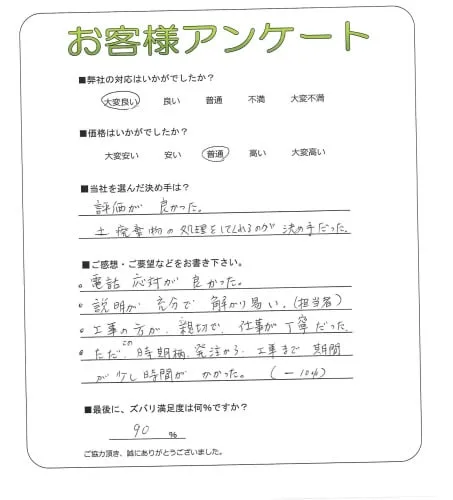 お客様アンケート
■弊社の対応はいかがでしたか?
大変良い 良い 普通 不満 大変不満
■価格はいかがでしたか?
大変安い 安い 普通 高い 大変高い
■当社を選んだ決め手は?
評価が 良かった。
土、廃棄物の処理をしてくれるのが 決め手だった。
■ご感想・ご要望などをお書き下さい。
・電話 応対が 良かった。
・説明が 充分で 解かり易い。(担当者)
・工事の方が、親切で、仕事が丁寧だった。
・ただ、この時期柄、発注から、工事まで 期間
が少し時間が かかった。 (-10%)
■最後に、ズバリ満足度は何%ですか?
90 %
ご協力頂き、誠にありがとうございました。